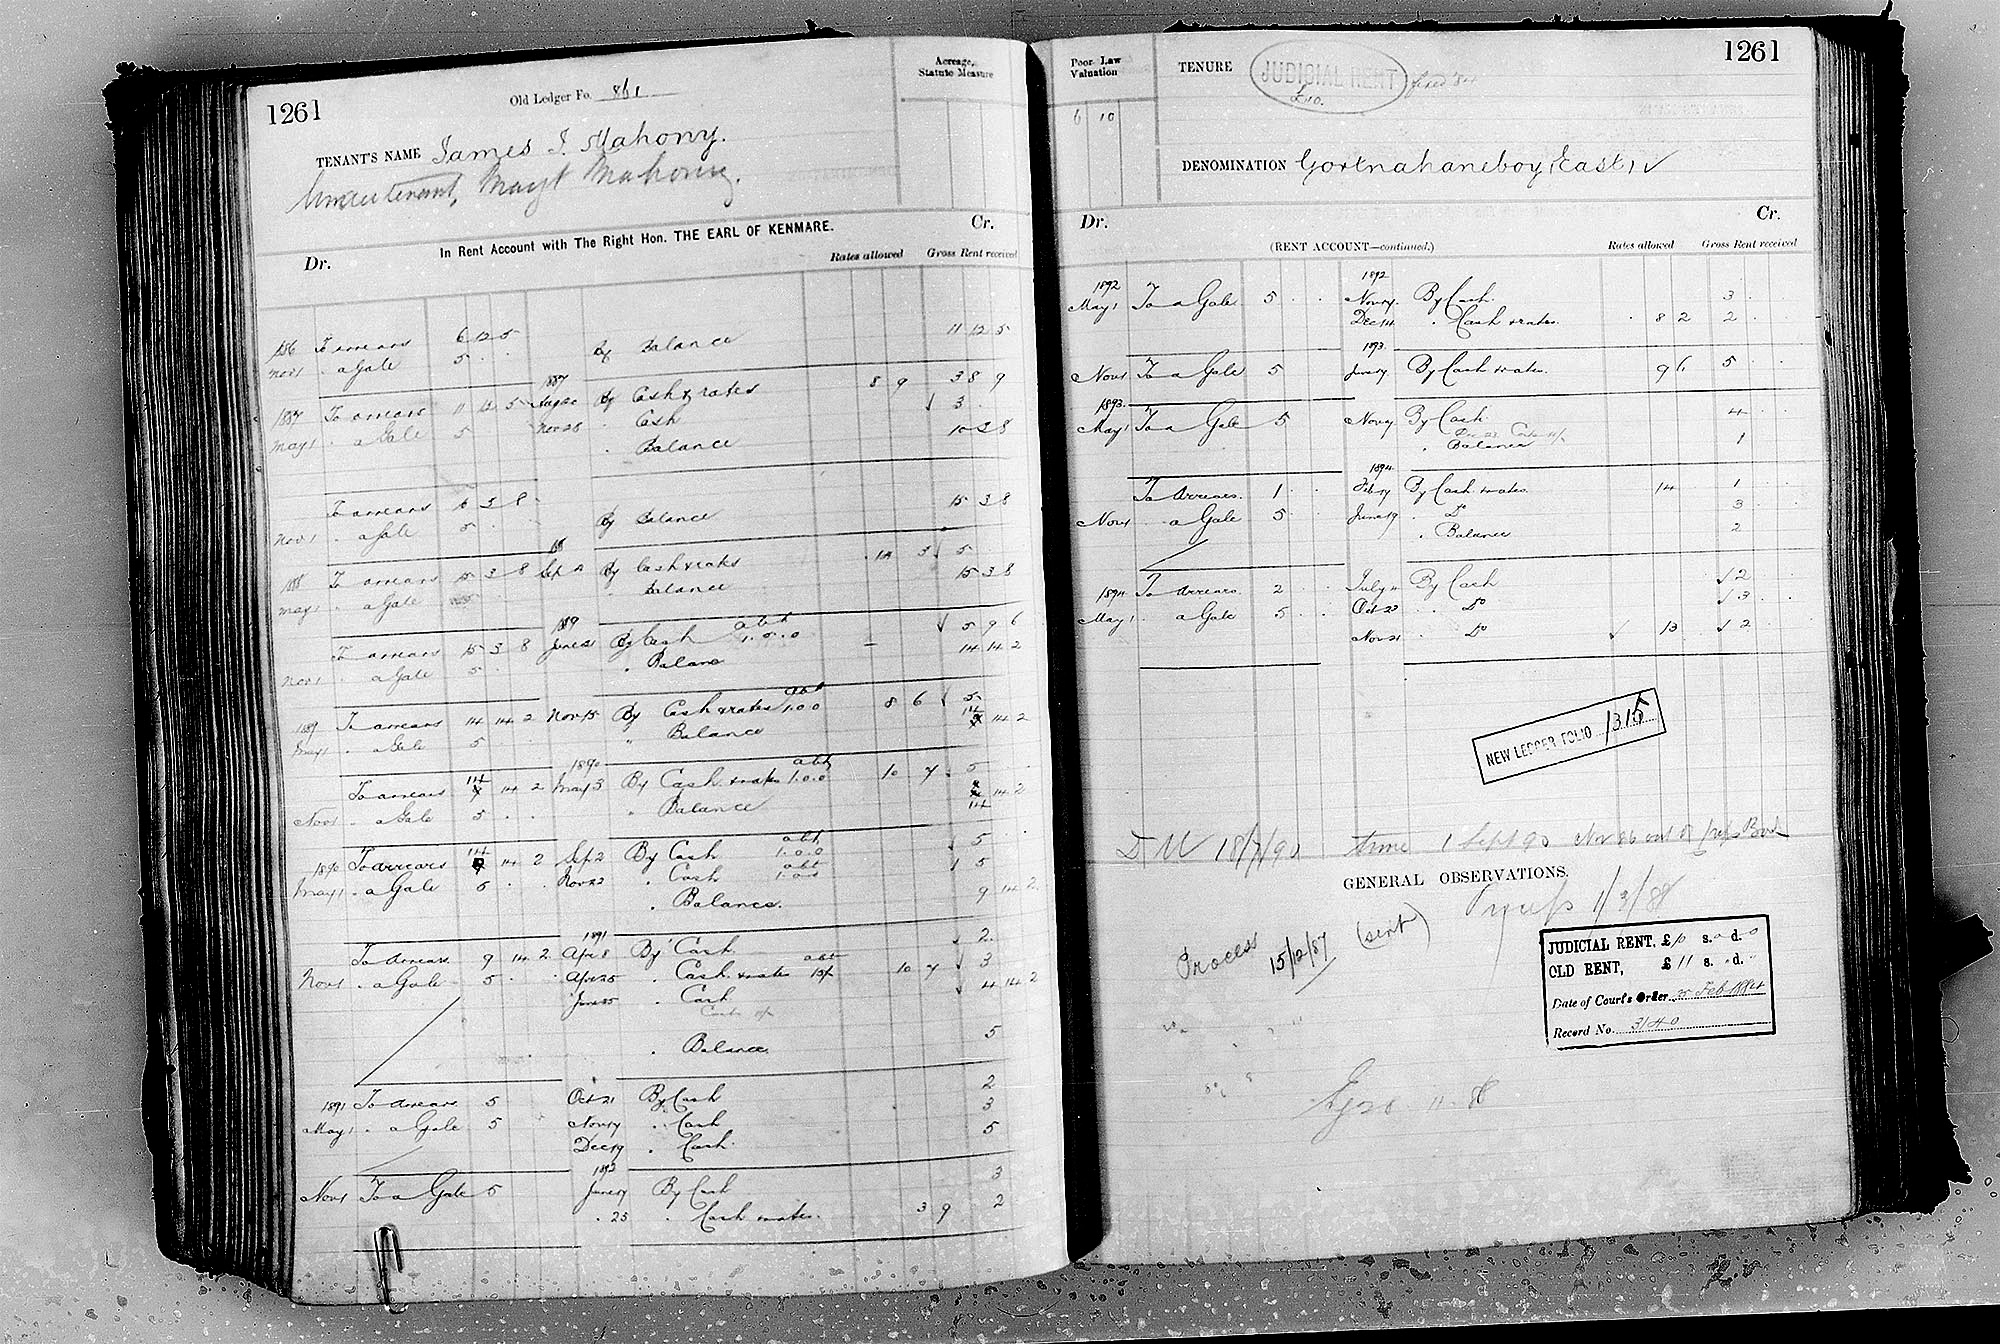 1261
Old Ledger Fo. 861
Acreage, Statute Measure
TENANT'S NAME James J. Mahony.
Mahony.
In Rent Account with The Right Hon. THE EARL OF KENMARE.
Dr. Cr.
Rates allowed Gross Rent received
To arrears 6 12 5
Nov 1 " a Gale 5 . . By Balance 11 12 5
1887
1887 To arrears 11 12 5 By Cash & rates 8 9 3 8 9
May 1 " a Gale 5 Nov 28 " Cash √ 3
" Balance 10 3 8
To arrears 10 3 8
Nov 1 " a Gale 5 By Balance 15 3 8
To arrears 15 3 8 By Cash & rates 5
May 1 " a Gale Balance 15 3 8
To arrears 15 3 8 June 21 By Cash abt 1.0.0 √ 5 9 6
Nov 1 a Gale 5 " Balance 14 14 2
1889 To arrears 14 14 2 Nov 15 By Cash & rates abt 1.0.0 8 6 √ 5
May 1 " a Gale 5 " Balance 14 14 2
1890
To arrears 14 14 2 May 3 By Cash & rates abt 1.0.0 10 7 5
Nov 1 " a Gale 5 . . " Balance 14 14 2
1890 To arrears 14 14 2 Sep 2 By Cash abt 1.0.0 √ 5
May 1 " a Gale 5 . . Nov 22 " Cash abt √ 5
" Balance. 9 14 2
1891
To Arrears 9 14 2 Apr 8 By Cash √ 2
Nov 1 " a Gale 5 . . Apr 25 " Cash & rates abt 10 7 √ 3
June 25 " Cash √ 4 14 2
" Balance. 5
1891 To Arrears 5 Oct 21 By Cash 2
May 1 " a Gale 5 Nov 17 " Cash 3
Dec 19 " Cash. 5
1892
Nov 1 To a Gale 5 June 17 By Cash 3
" 25 " Cash & rates. 3 9 2
1261
Poor Law Valuation
6 10
TENURE JUDICIAL RENT fixed '84
£10.
DENOMINATION Gortnahaneboy (East) √
Dr. Cr.
(RENT ACCOUNT—continued.)
Rates allowed Gross Rent received
1892 1892
May 1 To a Gale 5 . . Nov 17. By Cash. 3 .
Dec 14. " Cash & rates. 8 2 2 .
1893
Nov 1 To a Gale 5 June 17 By Cash & rates. 5 . .
1893.
May 1 To a Gale 5 Nov 17 By Cash 4 . .
" Balance 1
1894
To Arrears. 1 . . By Cash & rates. 14 1
Nov 1 " a Gale 5 . . June 19 " Do 3
" Balance 2
1894 To Arrears. 2 . . July 11 By Cash √ 2
May 1 . a Gale 5 . . Oct 23 " Do √ 3
Nov 21 " Do √ 13 √ 2
NEW LEDGER FOLIO 1315
18/7/90 time 1 Sept 90
GENERAL OBSERVATIONS.
1/3/88
Process 15/12/87 (sent)
JUDICIAL RENT, £10 s. 0 d. 0
OLD RENT, £11 s. " d. "
Date of Court's Order 25 Feb 1884
Record No. 3140